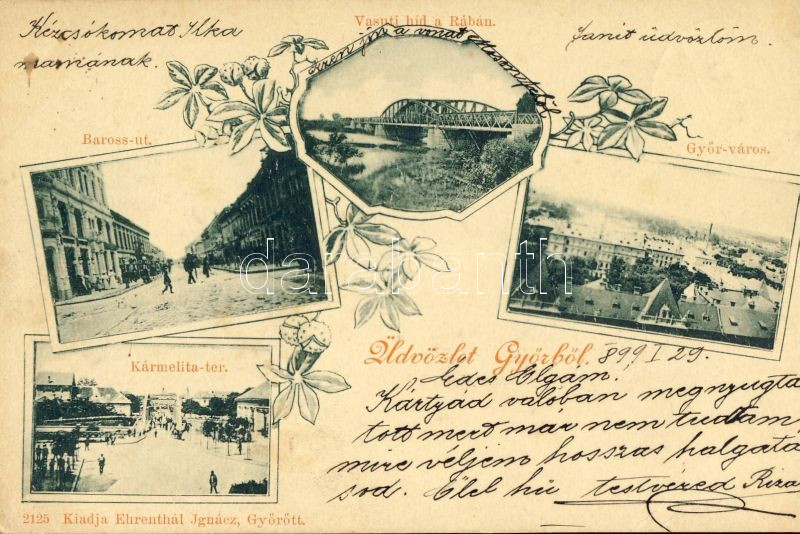 Vasuti híd a Rábán.
Kézcsókomat Ilka
mamának.
Janit üdvözlöm.
Ezen jön a vonat
Baross-ut.
Győr-város.
darabanth
Kármelita-ter.
Üdvözlet Győrből.
899 I 29.
Edes Olgám!
Kártyád valóban megnyugta
tott mert már nem tudtam,
mire véljem hosszas halgatá
sod. Ölel hű testvéred Riza
2125 Kiadja Ehrenthál Jgnácz, Győrött.